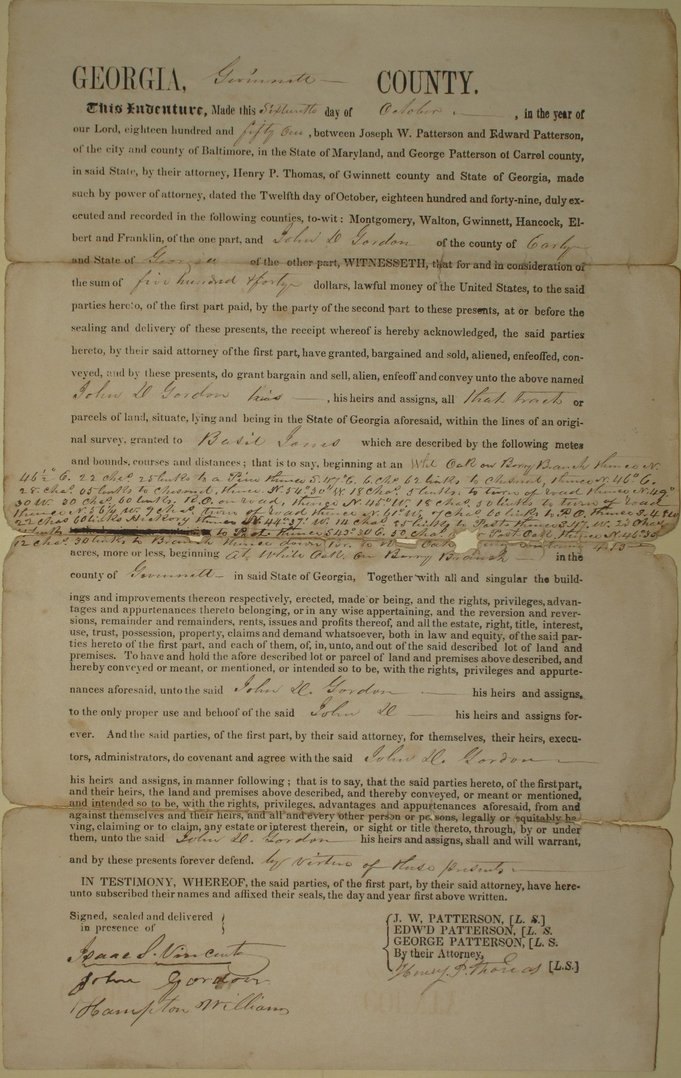 GEORGIA, Gwinnett — COUNTY.
This Indenture, Made this Sixteenth day of October —, in the year of
our Lord, eighteen hundred and fifty one, between Joseph W. Patterson and Edward Patterson,
of the city and county of Baltimore, in the State of Maryland, and George Patterson of Carrol county,
in said State, by their attorney, Henry P. Thomas, of Gwinnett county and State of Georgia, made
such by power of attorney, dated the Twelfth day of October, eighteen hundred and forty-nine, duly ex-
ecuted and recorded in the following counties, to-wit: Montgomery, Walton, Gwinnett, Hancock, El-
bert and Franklin, of the one part, and John D Gordon of the county of
and State of Georgia of the other part, WITNESSETH, that for and in consideration of
the sum of five hundred & forty dollars, lawful money of the United States, to the said
parties hereto, of the first part paid, by the party of the second part to these presents, at or before the
sealing and delivery of these presents, the receipt whereof is hereby acknowledged, the said parties
hereto, by their said attorney of the first part, have granted, bargained and sold, aliened, enfeoffed, con-
veyed, and by these presents, do grant bargain and sell, alien, enfeoff and convey unto the above named
John D Gordon his —, his heirs and assigns, all that tract or
parcels of land, situate, lying and being in the State of Georgia aforesaid, within the lines of an origi-
nal survey, granted to Basil Jones which are described by the following metes
and bounds, courses and distances; that is to say, beginning at an Wht Oak on Berry Branch thence N.
46½° E. 22 chs 25 links to a Pine thence S. 47° E. 6 chs 62 links to Chesnut, thence N. 46° E.
28 chs 05 links to Chesnut, thence N. 54° 30' W. 18 chs 5 links to turn of road thence N. 49°
30 W. 30 chs 60 links R.O. on road, thence N. 45° W. 18 chs 50 links to turn of road
thence N. 9 chs turn of road thence links to P.O. thence S.
22 chs 60 links Hickory thence 44° 37' W. 14 chs 25 links to Post thence S. 47 W. 23 chs
to Post thence S 43° 30 E. 30 chs Post Oak, thence N. 46° 30
12 chs 30 links to Branch thence down
acres, more or less, beginning At White Oak on Berry Branch — in the
county of Gwinnett — in said State of Georgia, Together with all and singular the build-
ings and improvements thereon respectively, erected, made or being, and the rights, privileges, advan-
tages and appurtenances thereto belonging, or in any wise appertaining, and the reversion and rever-
sions, remainder and remainders, rents, issues and profits thereof, and all the estate, right, title, interest,
use, trust, possession, property, claims and demand whatsoever, both in law and equity, of the said par-
ties hereto of the first part, and each of them, of, in, unto, and out of the said described lot of land and
premises. To have and hold the afore described lot or parcel of land and premises above described, and
hereby conveyed or meant, or mentioned, or intended so to be, with the rights, privileges and appurte-
nances aforesaid, unto the said John D. Gordon — his heirs and assigns,
to the only proper use and behoof of the said John D — his heirs and assigns for-
ever. And the said parties, of the first part, by their said attorney, for themselves, their heirs, execu-
tors, administrators, do covenant and agree with the said John D. Gordon —
his heirs and assigns, in manner following; that is to say, that the said parties hereto, of the first part,
and their heirs, the land and premises above described, and thereby conveyed, or meant or mentioned,
and intended so to be, with the rights, privileges, advantages and appurtenances aforesaid, from and
against themselves and their heirs, and all and every other person or persons, legally or equitably ha-
ving, claiming or to claim, any estate or interest therein, or sight or title thereto, through, by or under
them, unto the said John D. Gordon his heirs and assigns, shall and will warrant,
and by these presents forever defend. by virtue of these presents —
IN TESTIMONY, WHEREOF, the said parties, of the first part, by their said attorney, have here-
unto subscribed their names and affixed their seals, the day and year first above written.
Signed, sealed and delivered
in presence of
J. W. PATTERSON, [L. S.]
EDW'D PATTERSON, [L. S.
GEORGE PATTERSON, [L. S.
By their Attorney,
Henry P. Thomas [L.S.]
Isaac S. Vincent
John Gordon
Hampton Williams